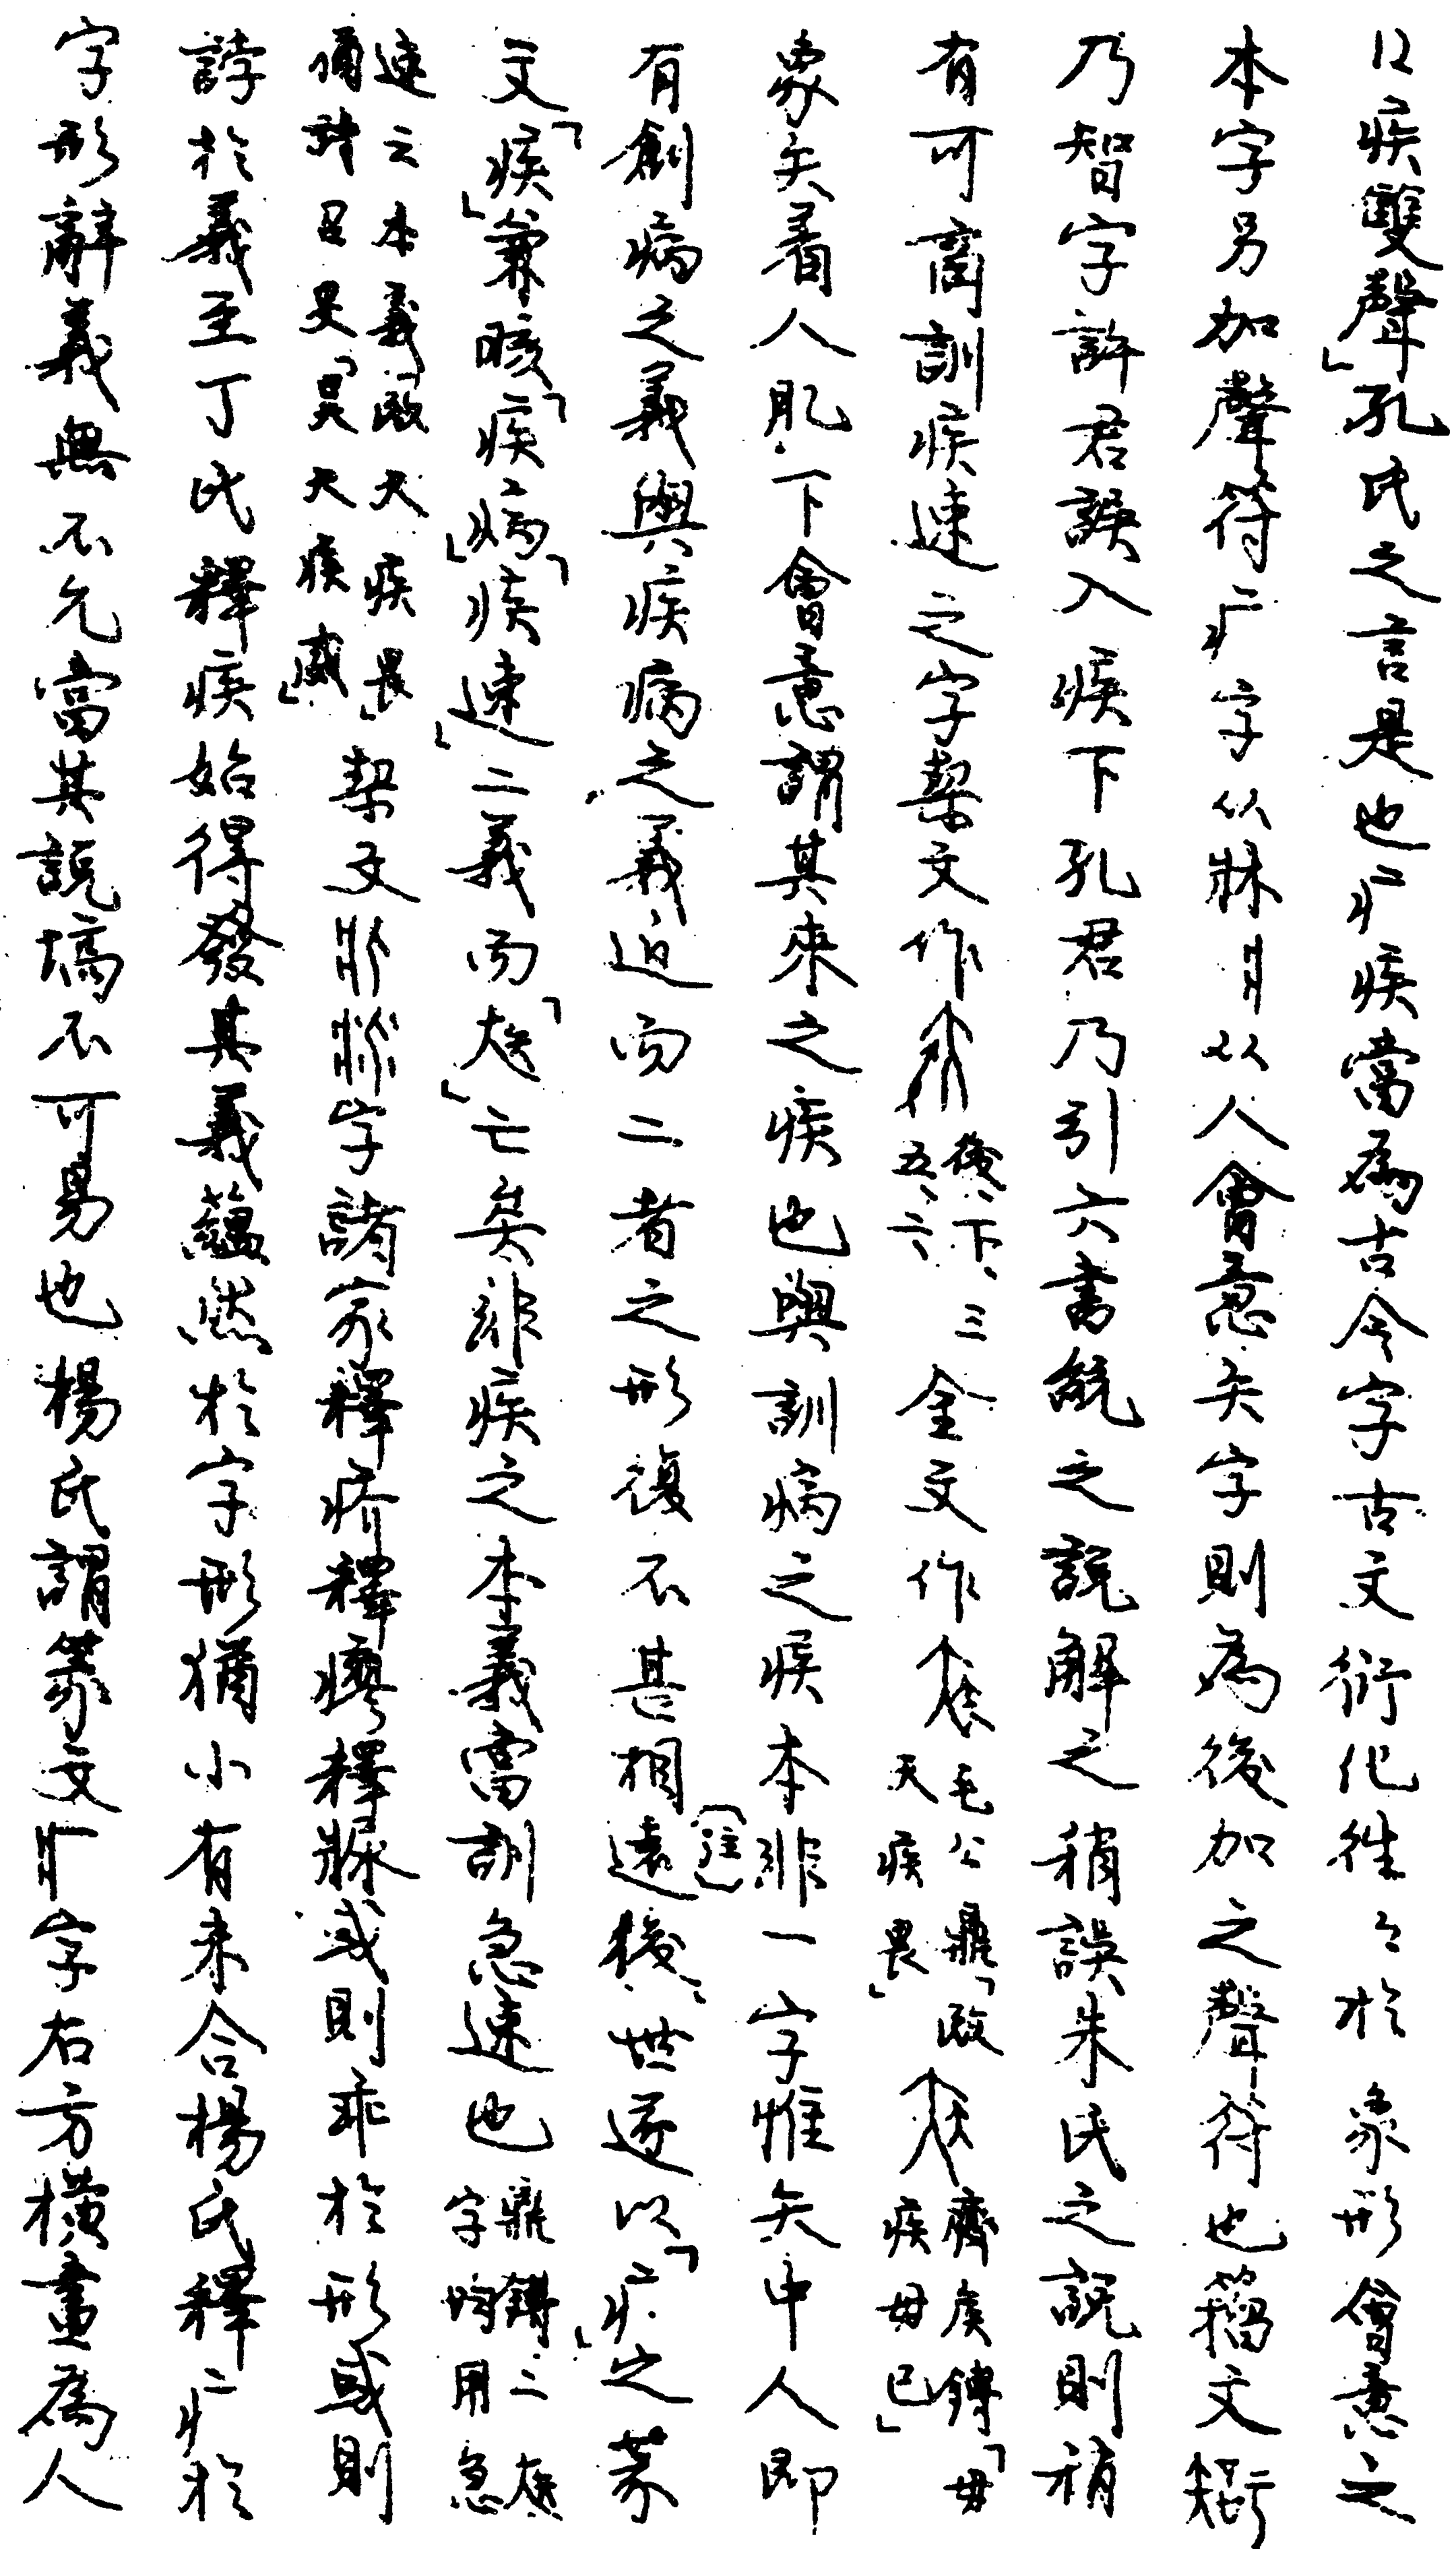 以疾雙聲」孔氏之言是也疒疾當為古今字古文衍化往々於象形會意之
本字另加聲符疒字从牀爿从人會意矢字則為後加之聲符也籀文𥏼
乃智字許君誤入疾下孔君乃引六書統之說解之稍誤朱氏之說則稍
有可商訓疾速之字栔文作後、下、三五、六金文作毛公鼎「敃天疾畏」齊矦鎛「毋疾毋已」
象矢着人肊下會意謂其來之疾也與訓病之疾本非一字惟矢中人即
有創病之義與疾病之義近而二者之形復不甚相遠〔註〕後世遂以「疒」之篆
文「疾」兼晐「疾病」「疾速」二義而「𤕺」亡矣非疾之本義當訓急速也鼎鎛二字均用急
速云本義「敃天疾畏」猶詩召旻「昊天疾威」栔文字諸家釋疥釋瘳釋牀或則乖於形或則
誖於義至丁氏釋疾始得發其義蘊然於字形猶小有未合楊氏釋疒於
字形辭義無不允當其說塙不可易也楊氏謂篆文疒字右方橫畫為人